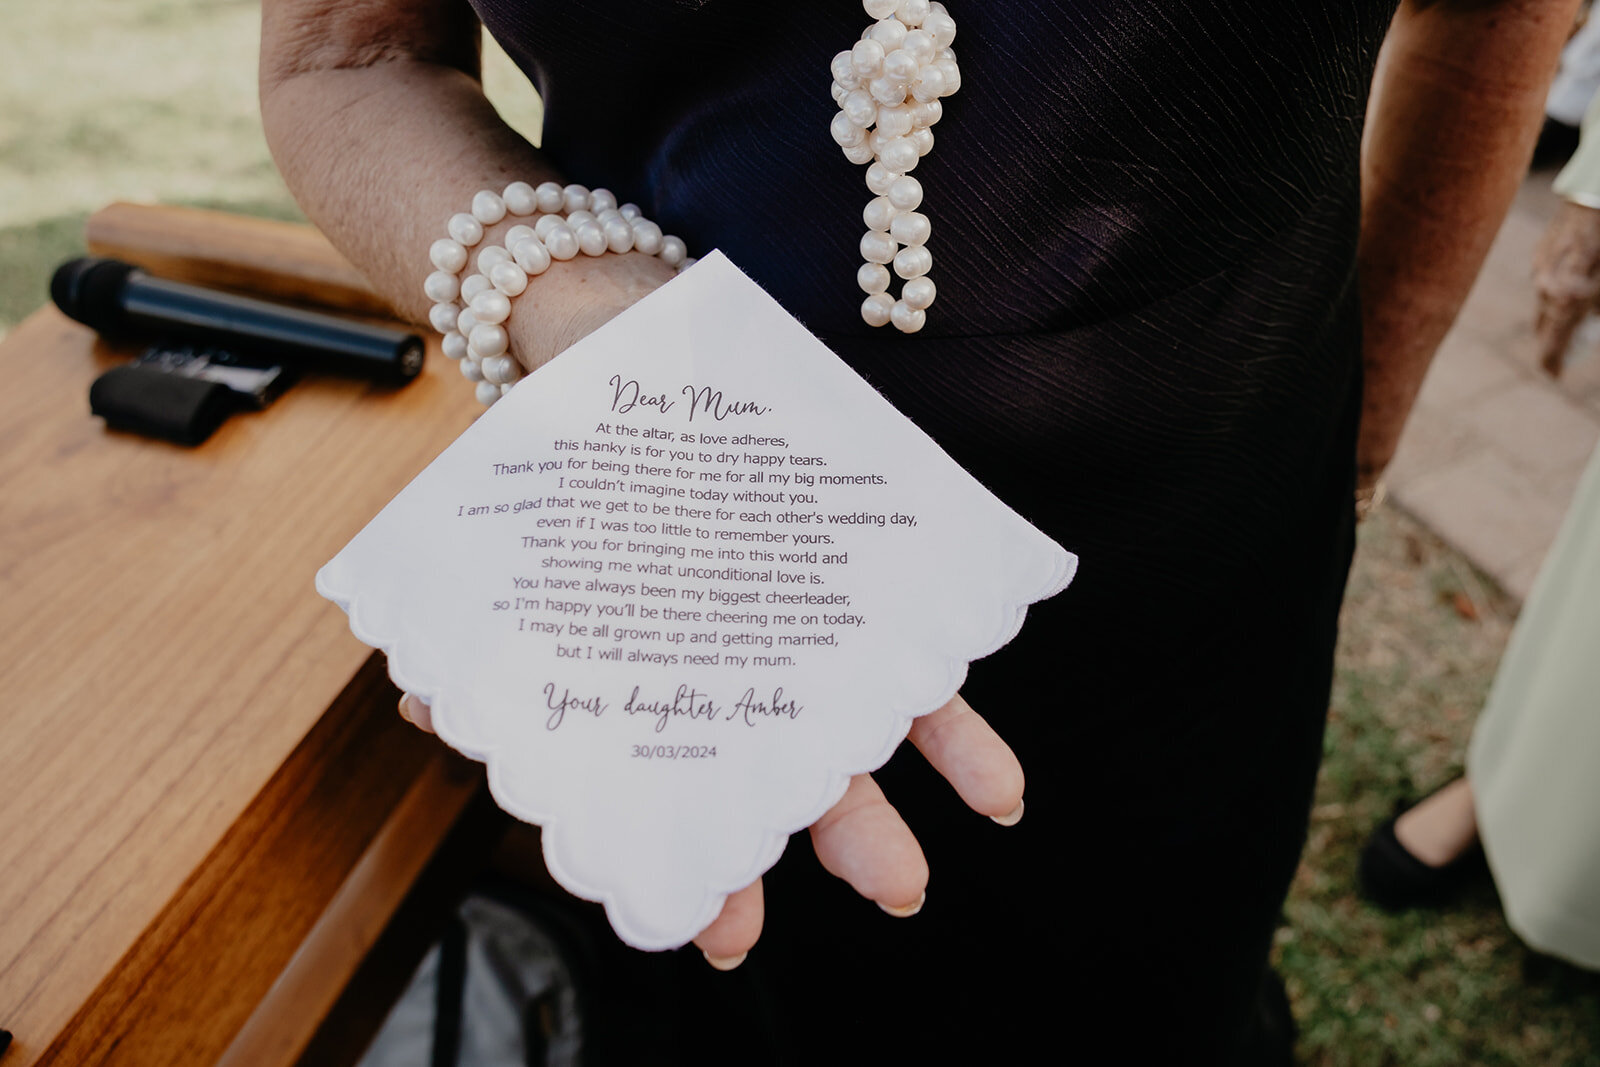 Dear Mum.
At the altar, as love adheres,
this hanky is for you to dry happy tears.
Thank you for being there for me for all my big moments.
I couldn't imagine today without you.
I am so glad that we get to be there for each other's wedding day,
even if I was too little to remember yours.
Thank you for bringing me into this world and
showing me what unconditional love is.
You have always been my biggest cheerleader,
so I'm happy you'll be there cheering me on today.
I may be all grown up and getting married,
but I will always need my mum.
Your daughter Amber
30/03/2024